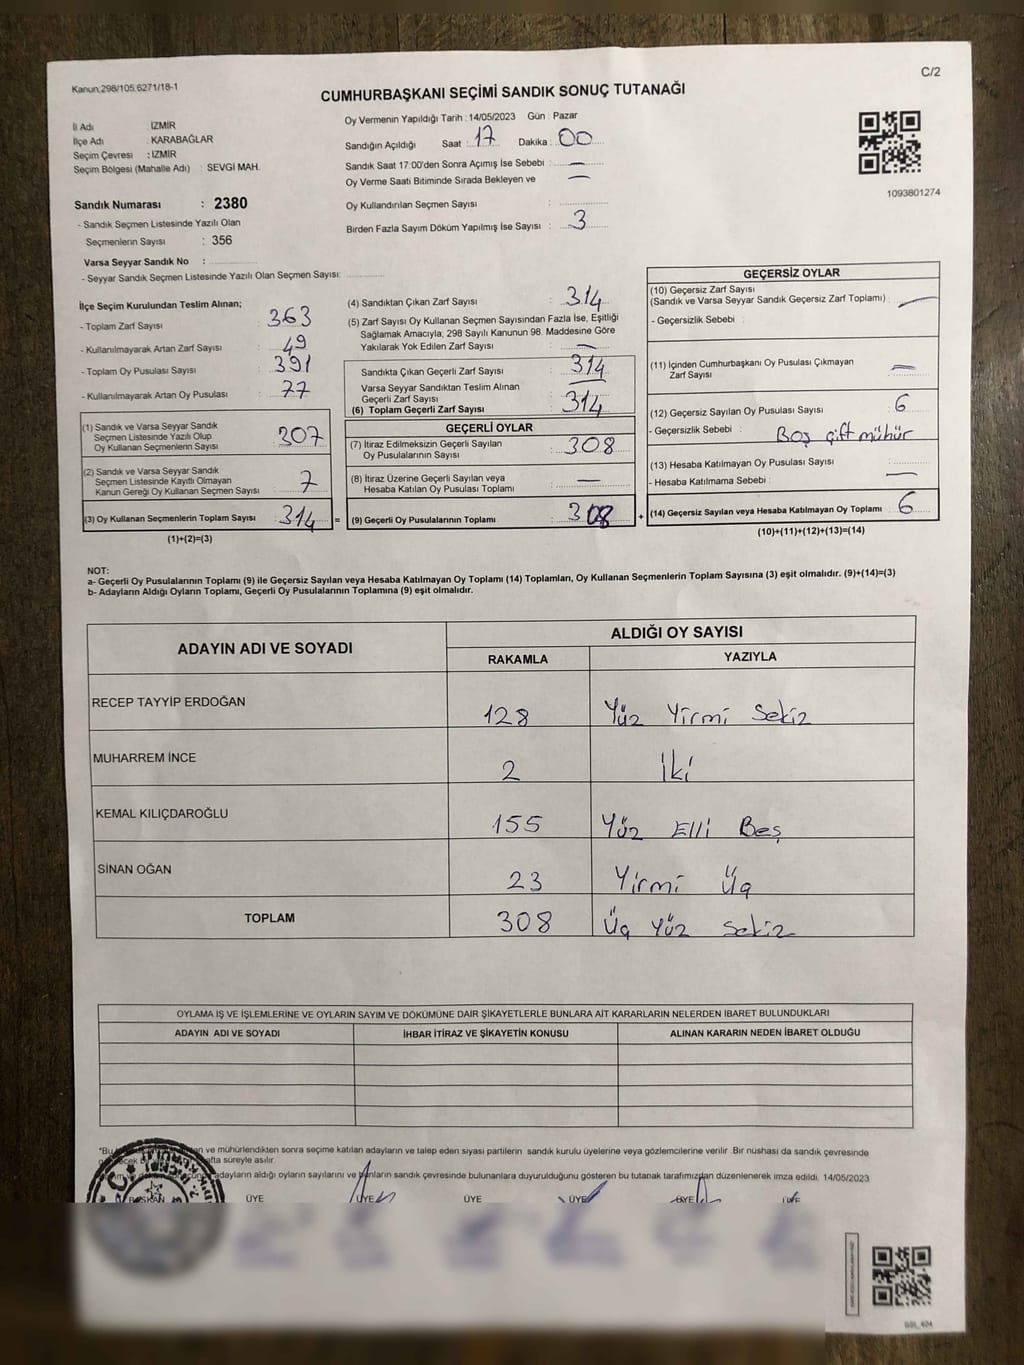 Kanun;298/105,6271/18-1
C/2
CUMHURBAŞKANI SEÇİMİ SANDIK SONUÇ TUTANAĞI
İl Adı : İZMİR
İlçe Adı : KARABAĞLAR
Seçim Çevresi : İZMİR
Seçim Bölgesi (Mahalle Adı) : SEVGİ MAH.
Sandık Numarası : 2380
- Sandık Seçmen Listesinde Yazılı Olan
Seçmenlerin Sayısı : 356
Varsa Seyyar Sandık No :
- Seyyar Sandık Seçmen Listesinde Yazılı Olan Seçmen Sayısı:
Oy Vermenin Yapıldığı Tarih : 14/05/2023 Gün : Pazar
Sandığın Açıldığı Saat : 17 Dakika : 00
Sandık Saat 17:00'den Sonra Açımış İse Sebebi : —
Oy Verme Saati Bitiminde Sırada Bekleyen ve —
Oy Kullandırılan Seçmen Sayısı :
Birden Fazla Sayım Döküm Yapılmış İse Sayısı : 3
1093801274
İlçe Seçim Kurulundan Teslim Alınan;
- Toplam Zarf Sayısı : 363
- Kullanılmayarak Artan Zarf Sayısı : 49
- Toplam Oy Pusulası Sayısı : 391
- Kullanılmayarak Artan Oy Pusulası : 77
(1) Sandık ve Varsa Seyyar Sandık
Seçmen Listesinde Yazılı Olup
Oy Kullanan Seçmenlerin Sayısı : 307
(2) Sandık ve Varsa Seyyar Sandık
Seçmen Listesinde Kayıtlı Olmayan
Kanun Gereği Oy Kullanan Seçmen Sayısı : 7
(3) Oy Kullanan Seçmenlerin Toplam Sayısı : 314 =
(1)+(2)=(3)
(4) Sandıktan Çıkan Zarf Sayısı : 314
(5) Zarf Sayısı Oy Kullanan Seçmen Sayısından Fazla İse, Eşitliği
Sağlamak Amacıyla, 298 Sayılı Kanunun 98. Maddesine Göre
Yakılarak Yok Edilen Zarf Sayısı : —
Sandıkta Çıkan Geçerli Zarf Sayısı : 314
Varsa Seyyar Sandıktan Teslim Alınan
Geçerli Zarf Sayısı : —
(6) Toplam Geçerli Zarf Sayısı : 314
GEÇERLİ OYLAR
(7) İtiraz Edilmeksizin Geçerli Sayılan
Oy Pusulalarının Sayısı : 308
(8) İtiraz Üzerine Geçerli Sayılan veya
Hesaba Katılan Oy Pusulası Toplamı : —
(9) Geçerli Oy Pusulalarının Toplamı : 308 +
GEÇERSİZ OYLAR
(10) Geçersiz Zarf Sayısı
(Sandık ve Varsa Seyyar Sandık Geçersiz Zarf Toplamı) : —
- Geçersizlik Sebebi :
(11) İçinden Cumhurbaşkanı Oy Pusulası Çıkmayan
Zarf Sayısı : —
(12) Geçersiz Sayılan Oy Pusulası Sayısı : 6
- Geçersizlik Sebebi : Boş çift mühür
(13) Hesaba Katılmayan Oy Pusulası Sayısı :
- Hesaba Katılmama Sebebi : —
(14) Geçersiz Sayılan veya Hesaba Katılmayan Oy Toplamı : 6
(10)+(11)+(12)+(13)=(14)
NOT:
a- Geçerli Oy Pusulalarının Toplamı (9) ile Geçersiz Sayılan veya Hesaba Katılmayan Oy Toplamı (14) Toplamları, Oy Kullanan Seçmenlerin Toplam Sayısına (3) eşit olmalıdır. (9)+(14)=(3)
b- Adayların Aldığı Oyların Toplamı, Geçerli Oy Pusulalarının Toplamına (9) eşit olmalıdır.
ADAYIN ADI VE SOYADI ALDIĞI OY SAYISI
RAKAMLA YAZIYLA
RECEP TAYYİP ERDOĞAN 128 Yüz Yirmi Sekiz
MUHARREM İNCE 2 İki
KEMAL KILIÇDAROĞLU 155 Yüz Elli Beş
SİNAN OĞAN 23 Yirmi Üç
TOPLAM 308 Üç Yüz Sekiz
OYLAMA İŞ VE İŞLEMLERİNE VE OYLARIN SAYIM VE DÖKÜMÜNE DAİR ŞİKAYETLERLE BUNLARA AİT KARARLARIN NELERDEN İBARET BULUNDUKLARI
ADAYIN ADI VE SOYADI İHBAR İTİRAZ VE ŞİKAYETİN KONUSU ALINAN KARARIN NEDEN İBARET OLDUĞU
ve mühürlendikten sonra seçime katılan adayların ve talep eden siyasi partilerin sandık kurulu üyelerine veya gözlemcilerine verilir .Bir nüshası da sandık çevresinde
süreyle asılır.
adayların aldığı oyların sayılarını ve bunların sandık çevresinde bulunanlara duyurulduğunu gösteren bu tutanak tarafımızdan düzenlenerek imza edildi. 14/05/2023
BAŞKAN ÜYE ÜYE ÜYE ÜYE ÜYE ÜYE